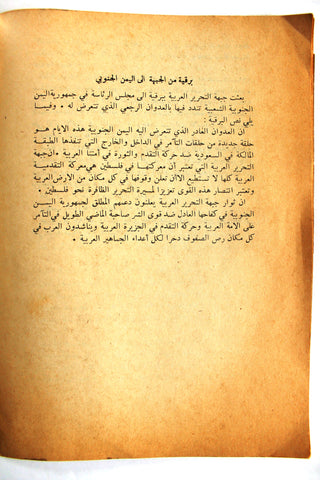 برقية من الجبهة الى اليمن الجنوبي
بعثت جبهة التحرير العربية ببرقية الى مجلس الرئاسة في جمهورية اليمن
الجنوبية الشعبية تندد فيها بالعدوان الرجعي الذي تتعرض له • وفيما
يلي نص البرقية :
ان العدوان الغادر الذي تتعرض اليه اليمن الجنوبية هذه الايام هو
حلقة جديدة من حلقات التآمر في الداخل والخارج التي تنفذها الطبقة
المالكة في السعودية ضد حركة التقدم والثورة في أمتنا العربية • ان جبهة
التحرير العربية التي تعتبر ان معركتها في فلسطين هي معركة التقدمية
العربية كلها لا تستطيع الا ان تعلن وقوفها في كل مكان من الارض العربية
وتعتبر انتصار هذه القوى تعزيزا لمسيرة التحرير الظافرة نحو فلسطين •
ان ثوار جبهة التحرير العربية يعلنون دعمهم المطلق لجمهورية اليمن
الجنوبية في كفاحها العادل ضد قوى الشر صاحبة الماضي الطويل في التآمر
على الامة العربية وحركة التقدم في الجزيرة العربية ويناشدون العرب في
كل مكان رص الصفوف دحرا لكل أعداء الجماهير العربية •